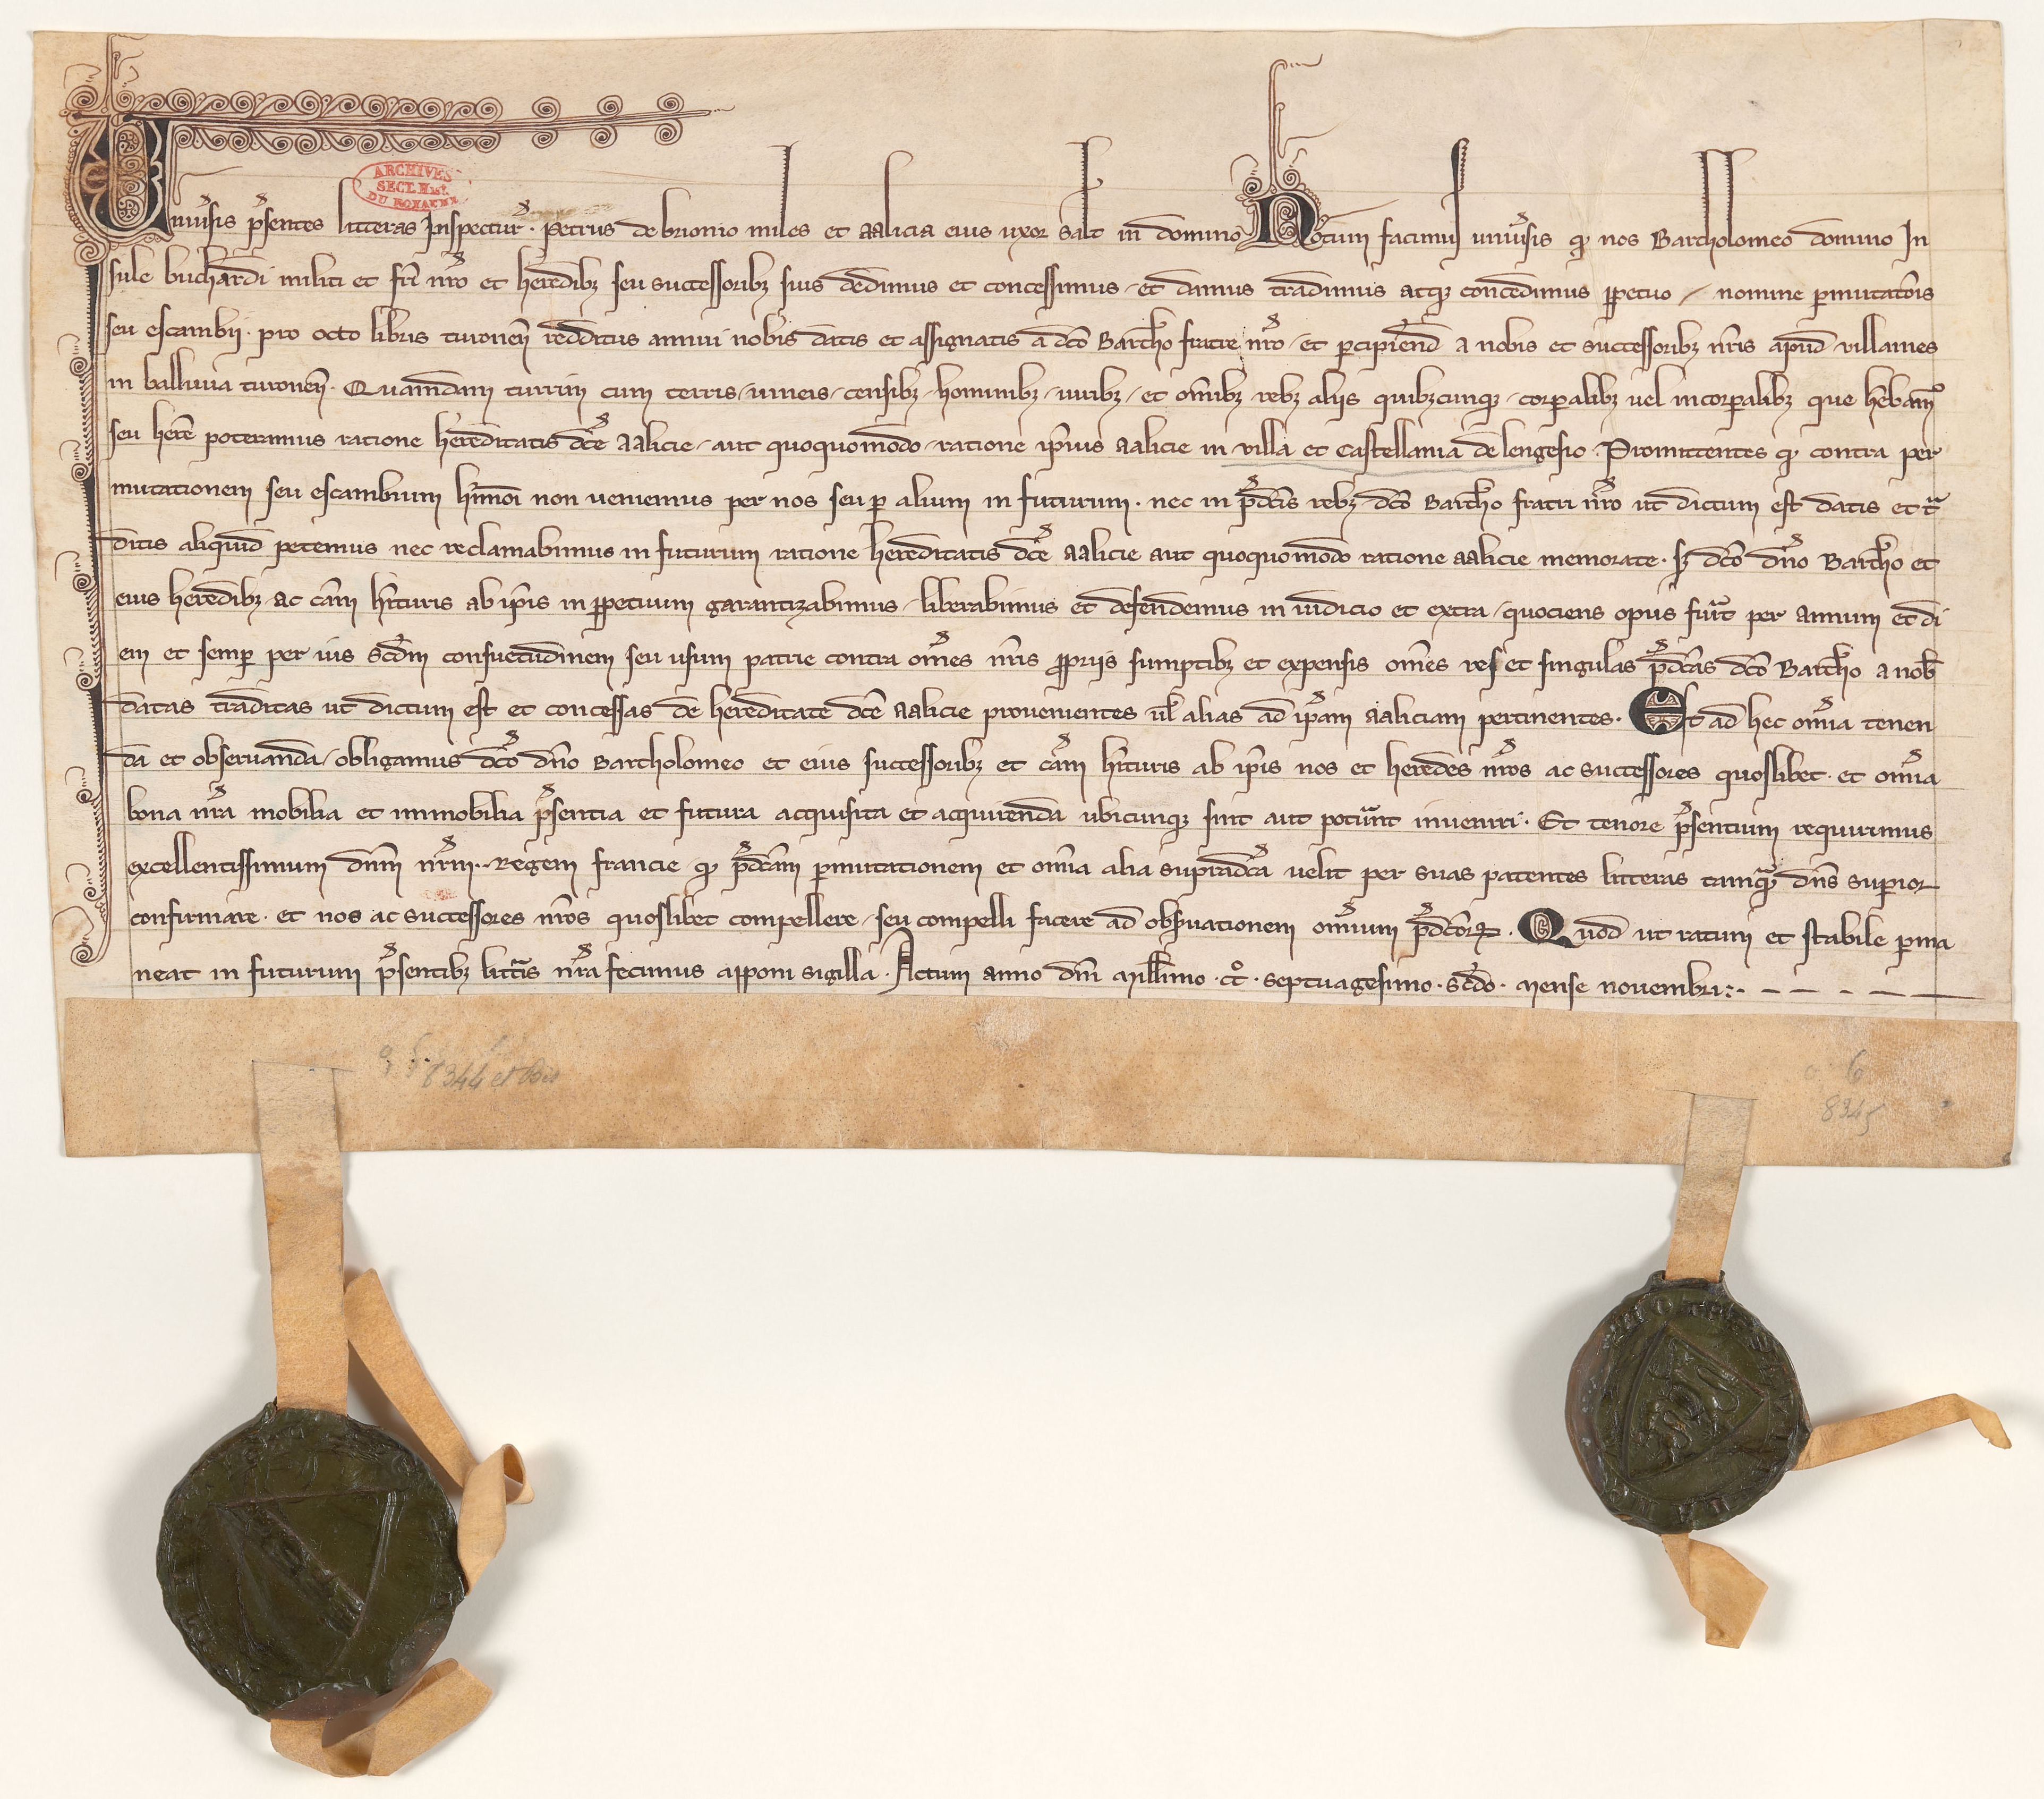 ARCHIVES
SECT. HIST.
DU ROYAUME
Univ̾sis p̾sentes litteras Inspectur̾ · petrus de brionio miles et aalicia eius uxor salt̄ in domino Notum facimus univ̾sis q̄ nos Bartholomeo domino In
sule buchardi militi et fr̄i nr̄o et heredibꝫ seu successoribꝫ suis dedimus et concessimus / et damus tradimus atqꝫ concedimus ꝑpetuo / nomine ꝑmutat̄onis
seu escambij · pro octo libris turonen̄ redditus annui nobis datis et assignatis a dc̄o Barth̄o fratre nr̄o / et percipiend̄ a nobis et successoribꝫ nr̄is apud villaines
in ballivia turonen̄ · Quamdam turrim cum terris / vineis / censibꝫ / hominibꝫ / iuribꝫ / et om̄ibꝫ rebꝫ alijs quibꝫcunqꝫ / corꝑalibꝫ vel incorꝑalibꝫ que heb̄am̾
seu her̄e poteramus ratione hereditatis dc̄e aalicie / aut quoquomodo / ratione ip̄ius aalicie in villa et castellania de lengesio · Promittentes q̄ contra per
mutationem seu escambium hm̄oi non veniemus per nos seu ꝑ alium in futurum · nec in p̄dc̄is rebꝫ dc̄o Barth̄o fratri nr̄o ut dictum est datis et tͣ
ditis aliquid petemus nec reclamabimus in futurum ratione hereditatis dc̄e aalicie aut quoquomodo ratione aalicie memorate · sꝫ dc̄o dn̄o Barth̄o et
eius heredibꝫ ac cām h̄ituris ab ip̄is in ꝑpetuum garantizabimus / liberabimus et defendemus in iudicio et extra / quociens opus fu̾it per annum et di
em et semꝑ per ius scd̄m consuetudinem seu usum patrie contra om̄es nr̄is ꝓprijs sumptibꝫ et expensis om̄es res et singulas p̄dc̄as dc̄o Barth̄o a nob̄
datas traditas ut dictum est et concessas de hereditate dc̄e aalicie provenientes ul̄ alias ad ip̄am aaliciam pertinentes · Et ad hec om̄ia tenen
da et observanda / obligamus dc̄o dn̄o Bartholomeo et eius successoribꝫ et cām h̄ituris ab ip̄is nos et heredes nr̄os ac successores quoslibet · et om̄ia
bona nr̄a mobilia et immobilia p̾sentia et futura acquisita et acquirenda ubicunqꝫ sint aut pot̾unt inveniri · Et tenore p̾sentium requirimus
excellentissimum dn̄m nr̄m · Regem francie q̄ p̄dc̄am ꝑmutationem et om̄ia alia supradc̄a velit per suas patentes litteras tamqͣ dn̄s suꝑior
confirmare · et nos ac successores nr̄os quoslibet compellere / seu compelli facere ad obs̾vationem om̄ium p̄dc̄orꝝ · Quod ut ratum et stabile ꝑma
neat in futurum p̾sentibꝫ litt̾is nr̄a fecimus apponi sigilla · Actum anno dn̄i Mill̄imo · cc̊ · septuagesimo · scd̄o · mense novembri :· — — · — —
8344 et bis
6
8345